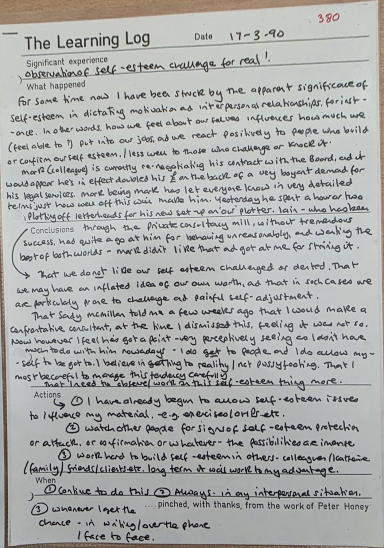 380
The Learning Log Date 17-3-90
Significant experience
observation of self-esteem challenge for real!
What happened
For some time now I have been struck by the apparent significance of
self-esteem in dictating motivation and interpersonal relationships, for inst-
-ance. In other words, how we feel about our selves influences how much we
(feel able to?) put into our jobs, and we react positively to people who build
or confirm our self esteem / less well to those who challenge or knock it.
Mark (colleague) is currently re-negotiating his contract with the Board, and it
would appear he's in effect doubled his £ on the back of a very buoyant demand for
his legal services. Mark being Mark has let everyone know in very detailed
terms just how well off this will make him. Yesterday he spent a hour or two
plotting off letterheads for his new set-up on our plotters. Iain - who has been
Conclusions through the private consultancy mill, without tremendous
success, had quite a go at him for behaving unreasonably, and wanting the
best of both worlds - Mark didn't like that and got at me for stirring it.
→ That we do not like our self esteem challenged or dented. That
we may have an inflated idea of our own worth, and that in such cases we
are particularly prone to challenge and painful self-adjustment.
That Sady McMillan told me a few weeks ago that I would make a
confrontative consultant, at the time I dismissed this, feeling it was not so.
Now however I feel he's got a point - very perceptively seeing as I don't have
much to do with him nowadays - I do get to people, and I do allow my-
self to be got to. I believe in getting to reality / not pussyfooting. That I
must be careful to manage this tendency carefully
That I need to observe / work on this self-esteem thing more.
Actions → ① I have already begun to allow self-esteem issues
to influence my material. - e.g. exercises / OHPs etc.
② Watch other people for signs of self-esteem protection
or attack, or confirmation or whatever - the possibilities are immense
③ Work hard to build self-esteem in others - colleagues /
/family/ friends/clients etc. long term it will work to my advantage.
When
① Continue to do this ② Always - in any interpersonal situation.
③ Whenever I get the ....pinched, with thanks, from the work of Peter Honey
chance - in writing / over the phone
/ face to face.